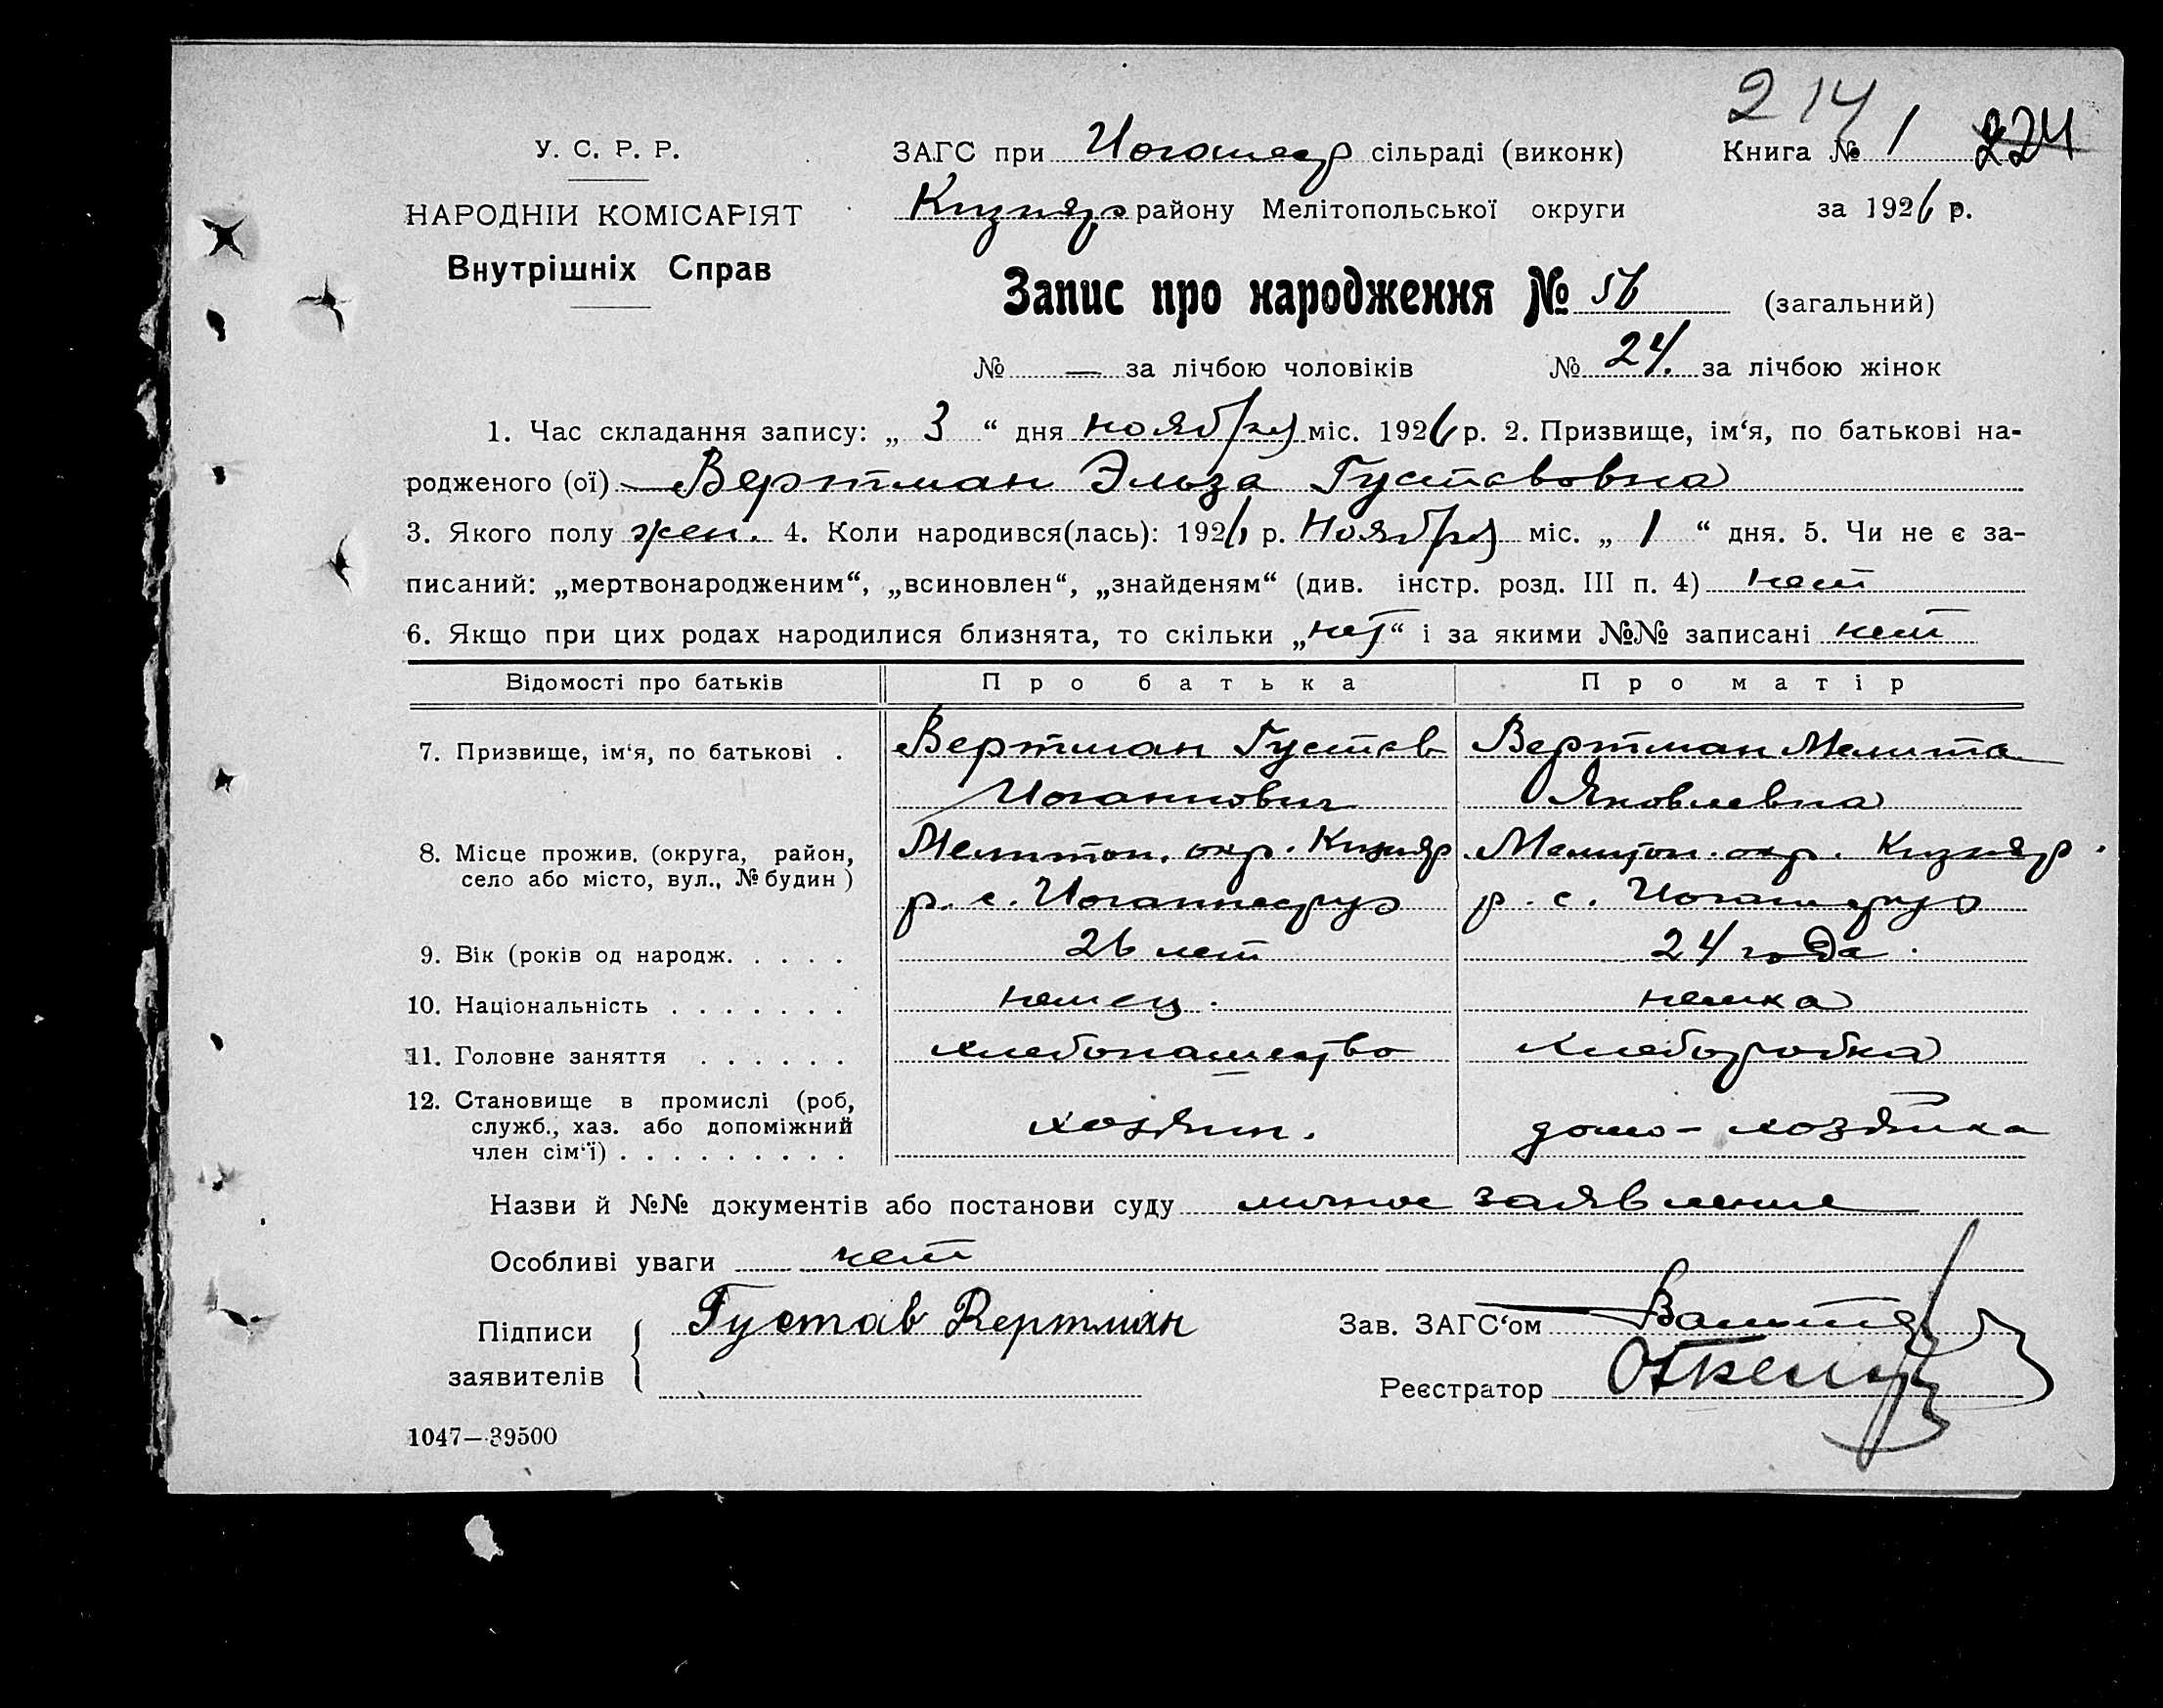 214
У. С. Р. Р.
НАРОДНІЙ КОМІСАРІЯТ
Внутрішніх Справ
ЗАГС при сільраді (виконк) Книга № 1 224
Кизияр району Мелітопольської округи за 1926 р.
Запис про народження № 56 (загальний)
№ — за лічбою чоловіків № 24. за лічбою жінок
1. Час складання запису: „ 3 “ дня ноября міс. 1926 р. 2. Призвище, ім‘я, по батькові на-
родженого (ої) Вертман Эльза Густавовна
3. Якого полу жен. 4. Коли народився(лась): 1926 р. Ноября міс. „ 1 “ дня. 5. Чи не є за-
писаний: „мертвонародженим“, „всиновлен“, „знайденям“ (див. інстр. розд. III п. 4) нет
6. Якщо при цих родах народилися близнята, то скільки „нет“ і за якими №№ записані нет
Відомості про батьків Про батька Про матір
7. Призвище, ім‘я, по батькові . Вертман Густав Вертман Мелита
Иоганнович Яковлевна
8. Місце прожив. (округа, район, Мелитоп. окр. Кизияр Мелитоп. окр. Кизияр
село або місто, вул., № будин) р. с. Иоганнесруэ р. с. Иоганнесруэ
9. Вік (років од народж. . . . . 26 лет 24 года
10. Національність . . . . . . . немец немка
11. Головне заняття . . . . . . хлебопашество хлеборобка
12. Становище в промислі (роб,
служб., хаз. або допоміжний хозяин. домо-хозяйка
член сім‘ї) . . . . . . . . .
Назви й №№ документів або постанови суду личное заявление
Особливі уваги нет
Підписи Густав Вертман Зав. ЗАГС‘ом
заявителів Реєстратор
1047—39500